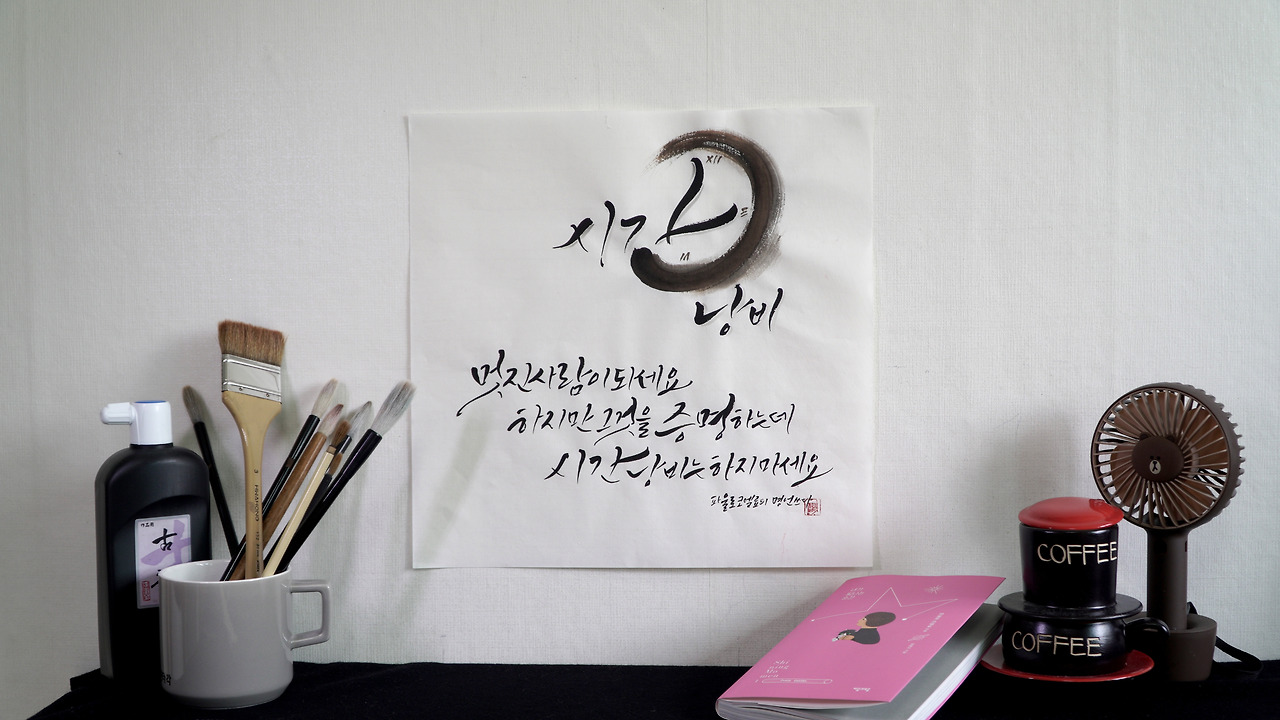 XII
시간
III
VI
낭비
멋진사람이되세요
하지만 그것을 증명하는데
시간낭비는하지마세요
파울로코엘료의 명언쓰다
古
COFFEE
COFFEE